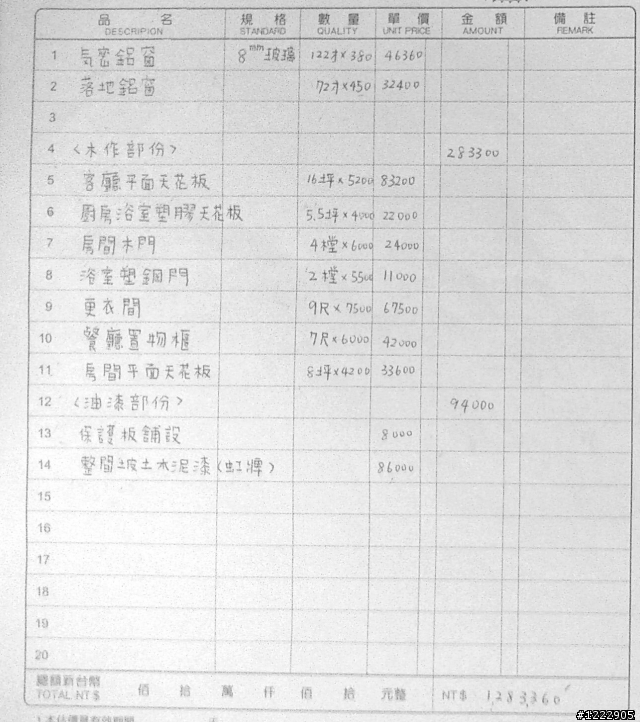 品名 規格 數量 單價 金額 備註
DESCRIPTION STANDARD QUALITY UNIT PRICE AMOUNT REMARK
1 気密鋁窗 8mm玻璃 122才×380 46360
2 落地鋁窗 72才×450 32400
3
4 〈木作部份〉 283300
5 客廳平面天花板 16坪×5200 83200
6 廚房浴室塑膠天花板 5.5坪×4000 22000
7 房間木門 4樘×6000 24000
8 浴室塑鋼門 2樘×5500 11000
9 更衣間 9尺×7500 67500
10 餐廳置物櫃 7尺×6000 42000
11 房間平面天花板 8坪×4200 33600
12 〈油漆部份〉 94000
13 保護板舖設 8000
14 整間披土水泥漆(虹牌) 86000
15
16
17
18
19
20
總額新台幣 佰 拾 萬 仟 佰 拾 元整 NT$ 1,283,360
TOTAL NT $
#1222905